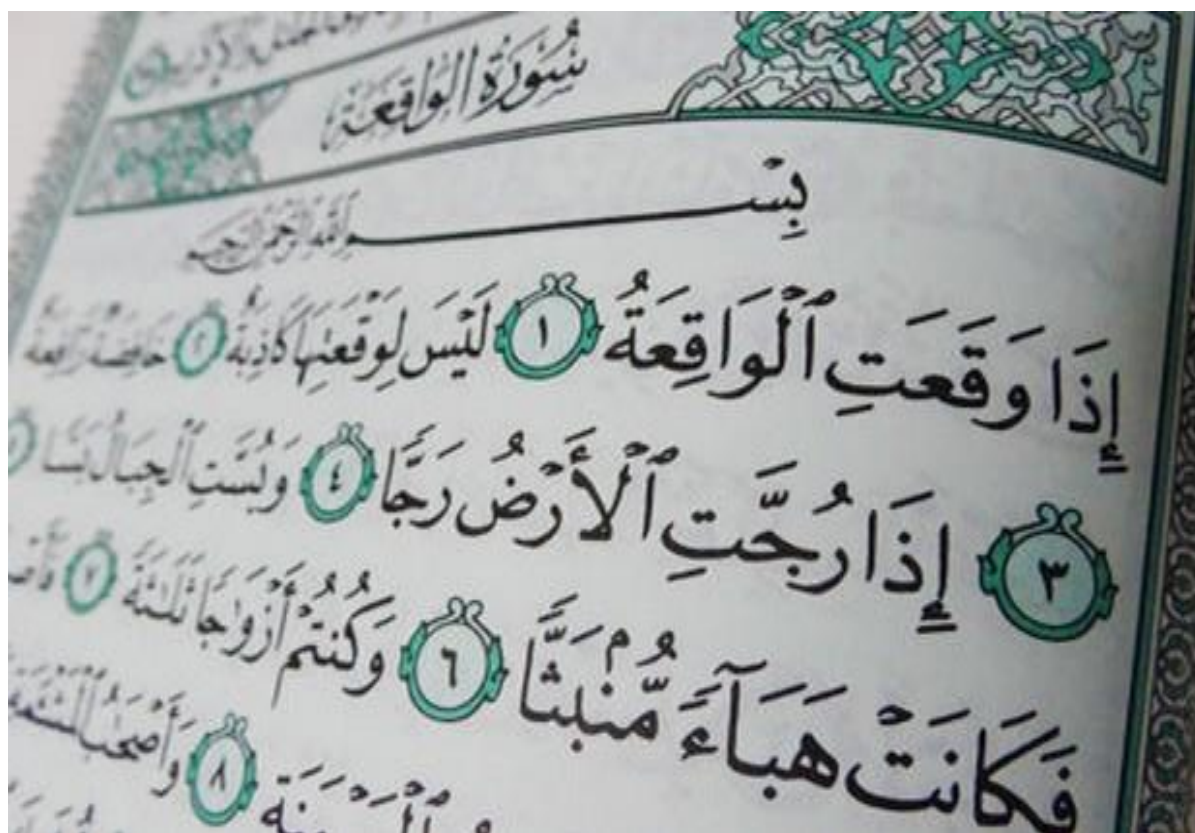 سُورَةُ الوَاقِعَةِ
بِسْمِ ٱللَّهِ ٱلرَّحْمَٰنِ ٱلرَّحِيمِ
إِذَا وَقَعَتِ ٱلْوَاقِعَةُ ١ لَيْسَ لِوَقْعَتِهَا كَاذِبَةٌ ٢ خَافِضَةٌ رَّافِعَةٌ
٣ إِذَا رُجَّتِ ٱلْأَرْضُ رَجًّا ٤ وَبُسَّتِ ٱلْجِبَالُ بَسًّا
فَكَانَتْ هَبَآءً مُّنۢبَثًّا ٦ وَكُنتُمْ أَزْوَٰجًا ثَلَٰثَةً ٧
٨ وَأَصْحَٰبُ